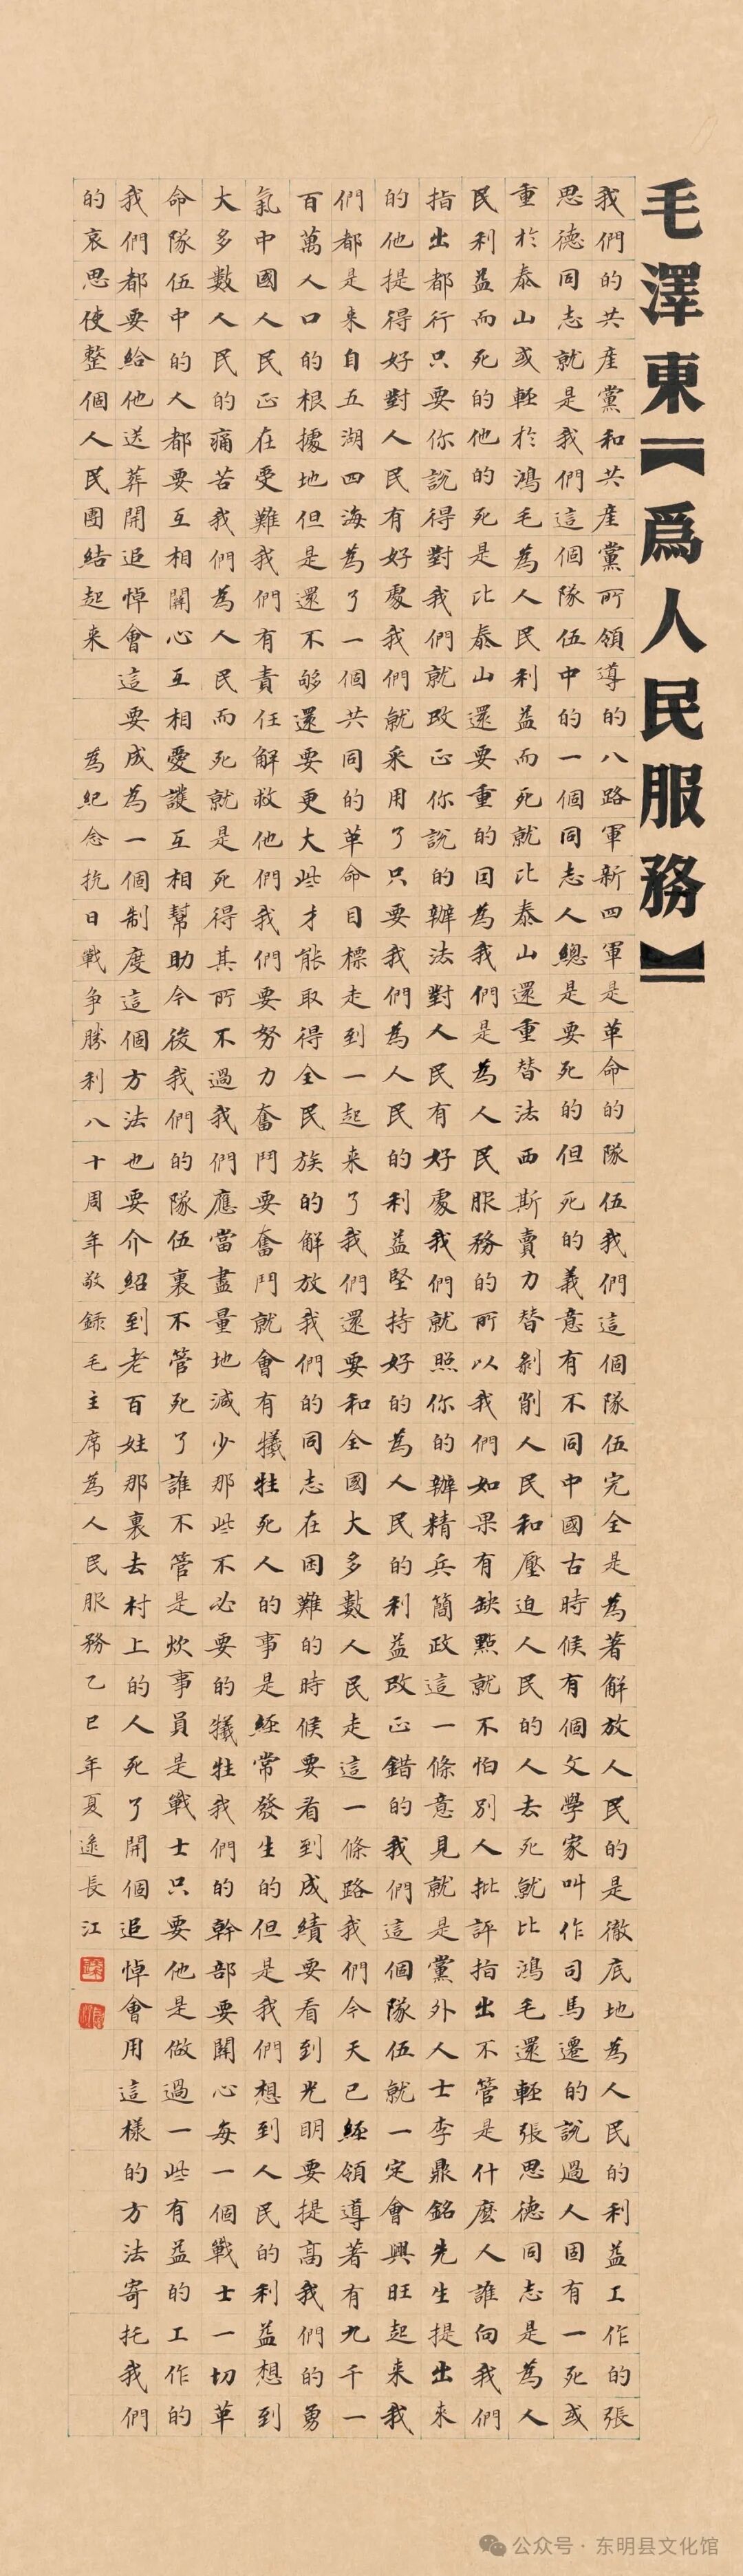 毛澤東【爲人民服務】
我們的共產黨和共產黨所領導的八路軍新四軍是革命的隊伍我們這個隊伍完全是為著解放人民的是徹底地為人民的利益工作的張
思德同志就是我們這個隊伍中的一個同志人總是要死的但死的義意有不同中國古時候有個文學家叫作司馬遷的說過人固有一死或
重於泰山或輕於鴻毛為人民利益而死就比泰山還重替法西斯賣力替剝削人民和壓迫人民的人去死就比鴻毛還輕張思德同志是為人
民利益而死的他的死是比泰山還要重的因為我們是為人民服務的所以我們如果有缺點就不怕別人批評指出不管是什麼人誰向我們
指出都行只要你說得對我們就改正你說的辦法對人民有好處我們就照你的辦精兵簡政這一條意見就是黨外人士李鼎銘先生提出來
的他提得好對人民有好處我們就采用了只要我們為人民的利益堅持好的為人民的利益改正錯的我們這個隊伍就一定會興旺起来我
們都是来自五湖四海為了一個共同的革命目標走到一起来了我們還要和全國大多數人民走這一條路我們今天已經領導著有九千一
百萬人口的根據地但是還不够還要更大些才能取得全民族的解放我們的同志在困難的時候要看到成績要看到光明要提高我們的勇
氣中國人民正在受難我們有責任解救他們我們要努力奮鬥要奮鬥就會有犧牲死人的事是經常發生的但是我們想到人民的利益想到
大多數人民的痛苦我們為人民而死就是死得其所不過我們應當盡量地減少那些不必要的犧牲我們的幹部要關心每一個戰士一切革
命隊伍中的人都要互相關心互相愛護互相幫助今後我們的隊伍裏不管死了誰不管是炊事員是戰士只要他是做過一些有益的工作的
我們都要給他送葬開追悼會這要成為一個制度這個方法也要介紹到老百姓那裏去村上的人死了開個追悼會用這樣的方法寄托我們
的哀思使整個人民團結起来 為紀念抗日戰争勝利八十周年敬錄毛主席為人民服務乙巳年夏逯長江
公众号·东明县文化馆